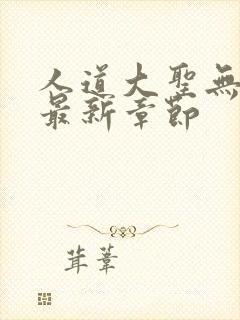 人道大聖無
最新章節
茸葦